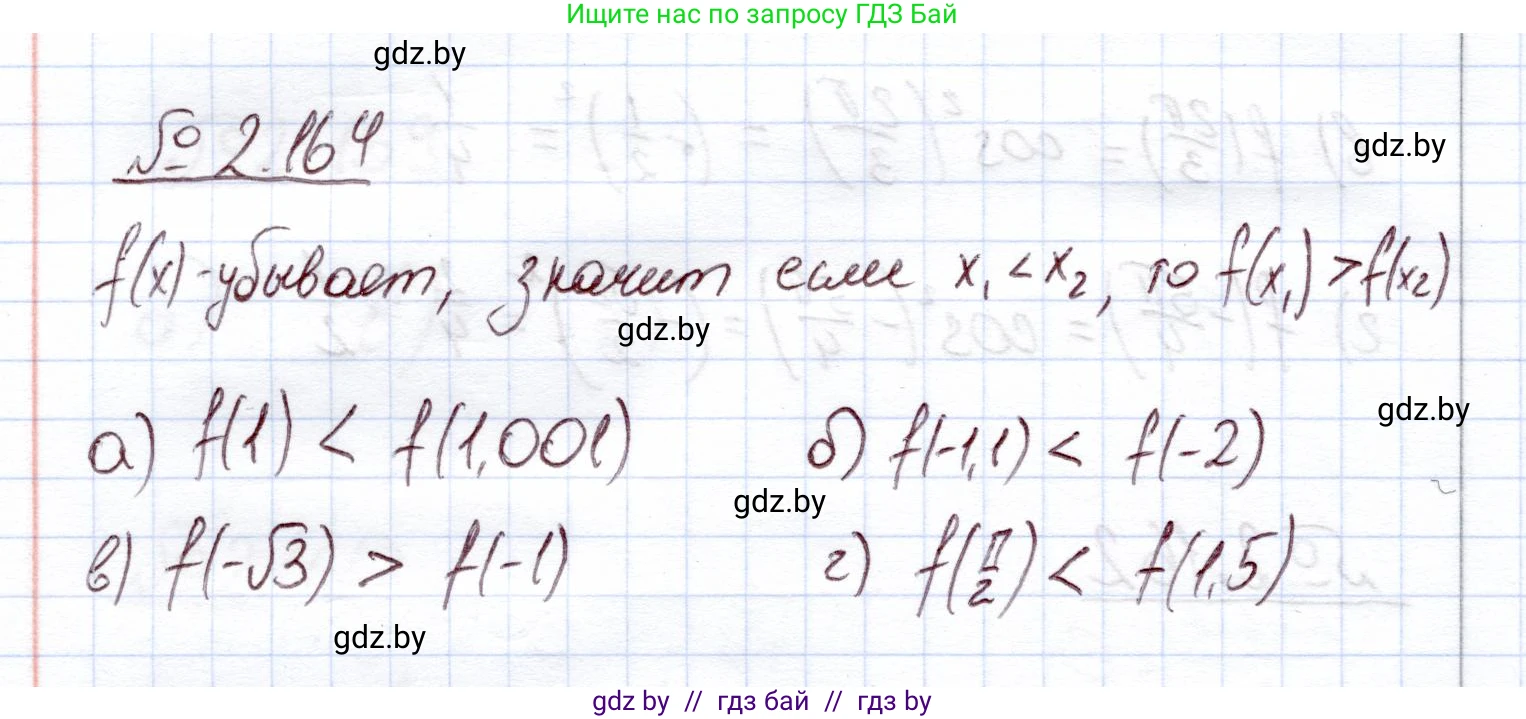 Ищите нас по запросу ГДЗ Бай
gdz.by
№ 2.164
gdz.by
f(x) - убывает, значит если x₁ < x₂, то f(x₁) > f(x₂)
gdz.by
gdz.by
а) f(1) < f(1,001) б) f(-1,1) < f(-2)
gdz.by
в) f(-√3) > f(-1) г) f(π/2) < f(1,5)
gdz.by
gdz by // гдз бай // гдз by